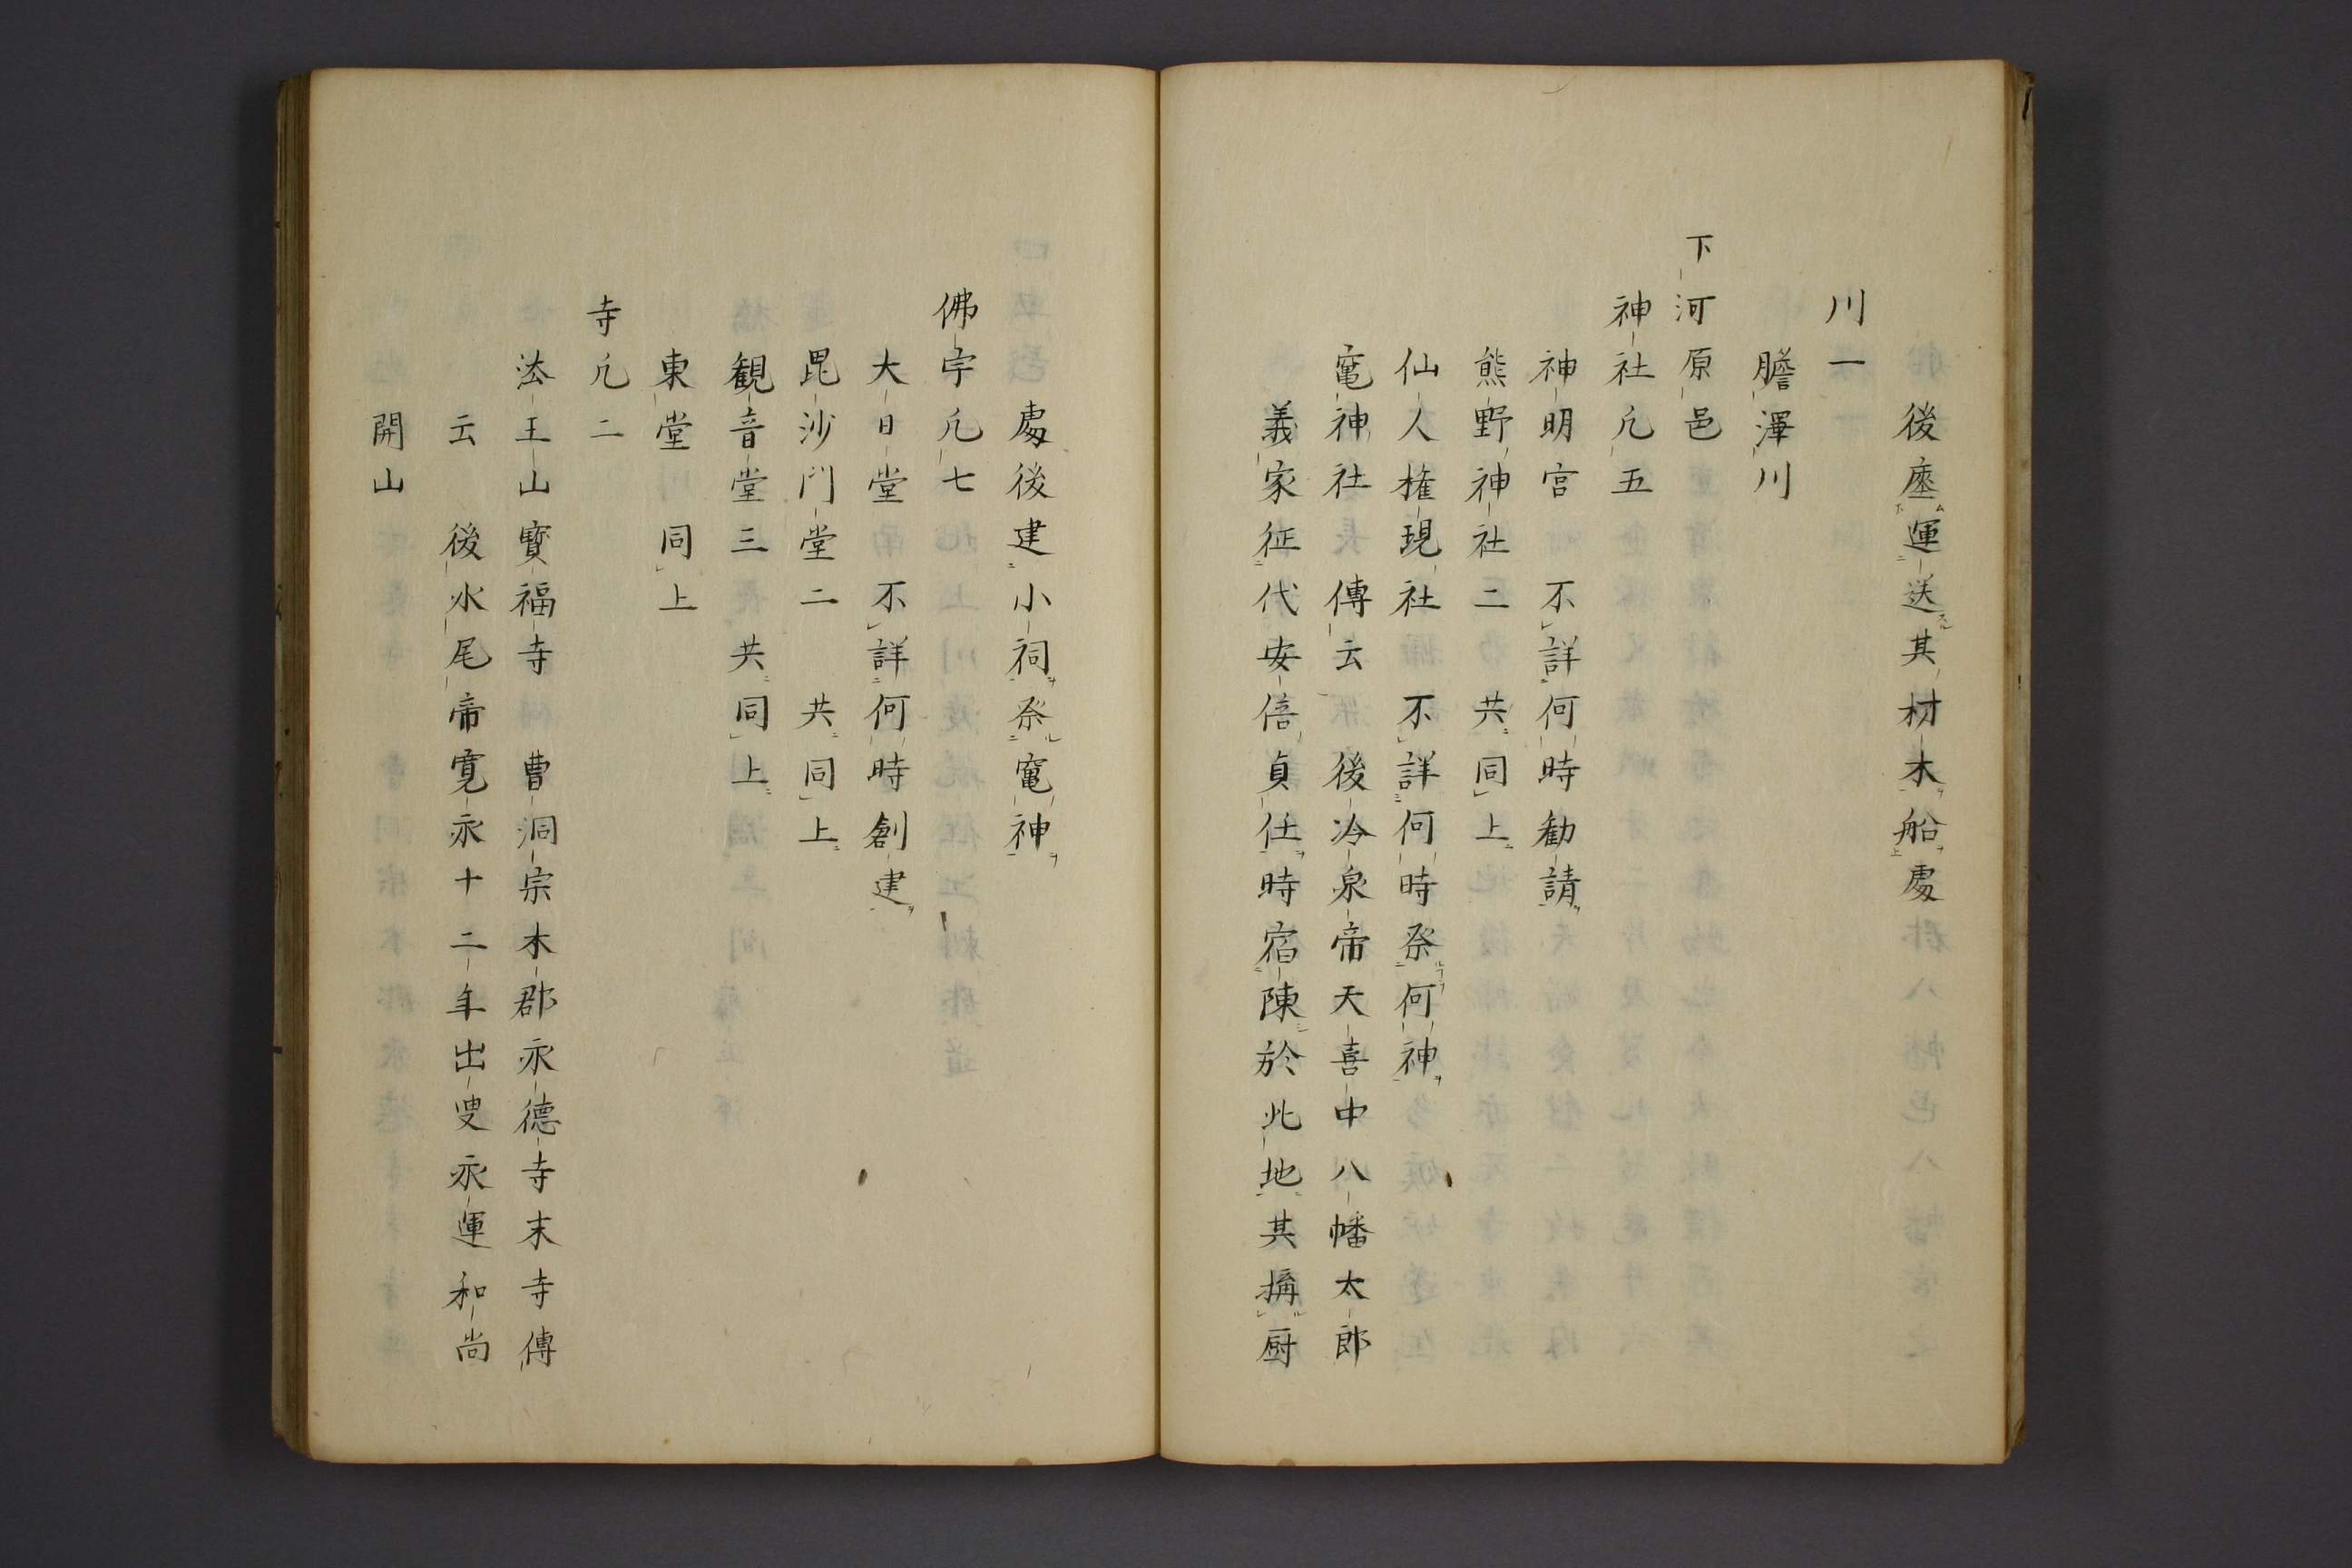 後座運送其材木船處
川一
膽澤川
下河原邑
神社凢五
神明宮 不詳何時勧請
熊野神社二 共同上
仙人権現社 不詳何時祭何神
竃神社 傳云 後冷泉帝天喜中八幡太郎
義家征代安倍貞任時宿陳於此地其搆厨
處後建小祠祭竃神
佛宇凢七
大日堂 不詳何時創建
毘沙門堂二 共同上
観音堂三 共同上
東堂 同上
寺凢二
法王山寳福寺 曹洞宗木郡永德寺末寺傳
云 後水尾帝寛永十二年出叟永運和尚
開山